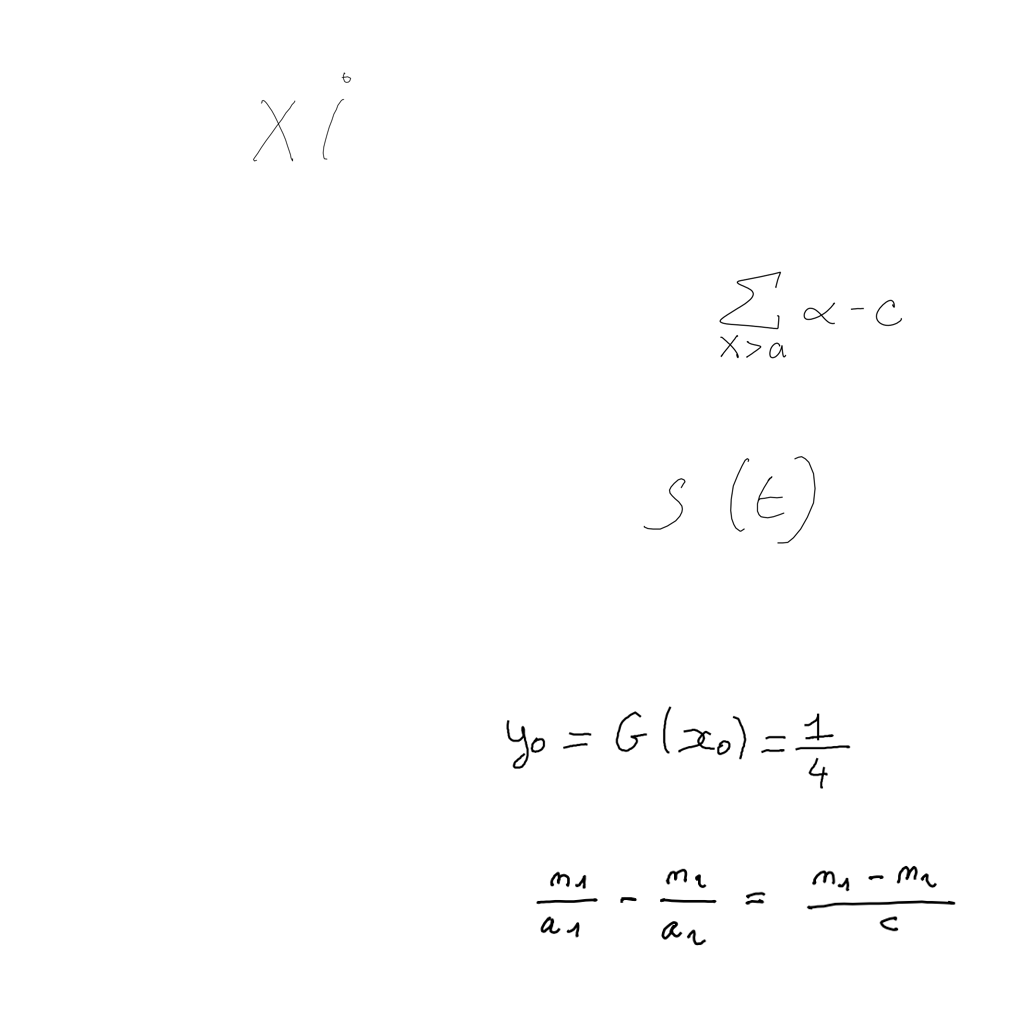 X i
\sum_{x>a} \alpha - c
s (t)
y_0 = G(x_0) = \frac{1}{4}
\frac{m_1}{a_1} - \frac{m_2}{a_2} = \frac{m_1 - m_2}{c}